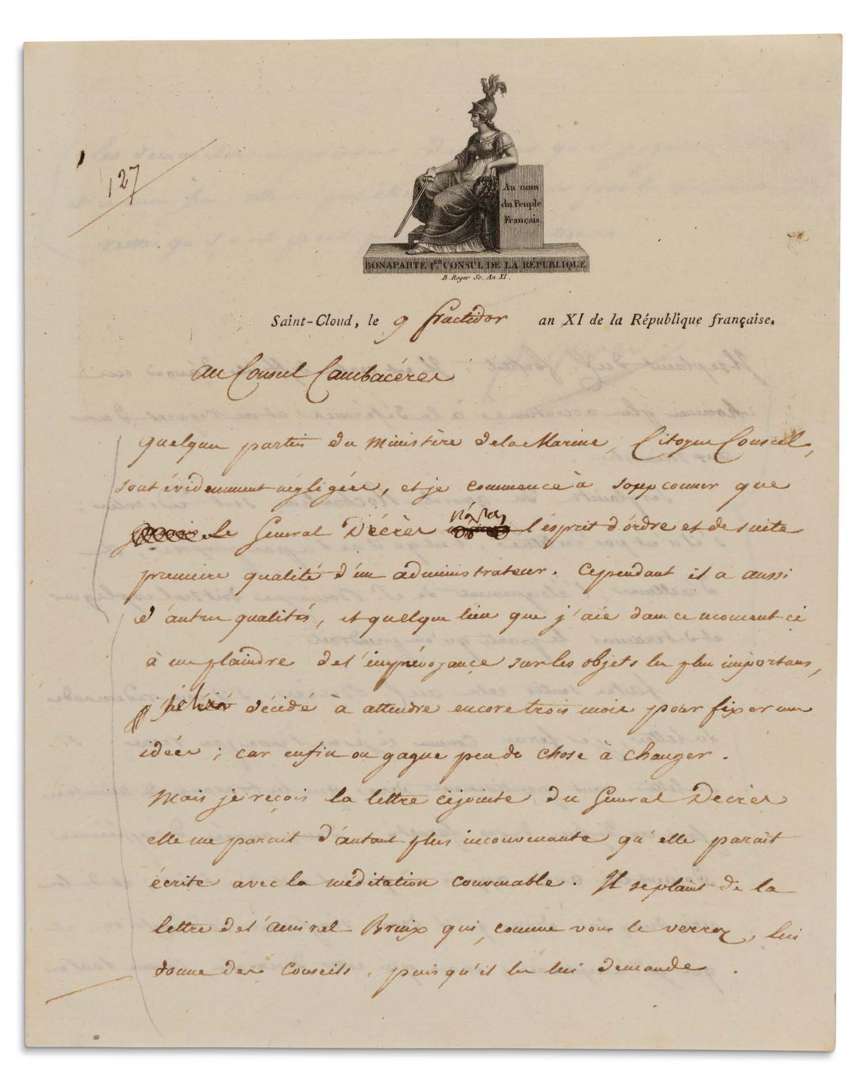 127
Au nom
du Peuple
Français
BONAPARTE 1.ER CONSUL DE LA RÉPUBLIQUE
B. Roger Sc. An XI.
Saint-Cloud, le 9 fructidor an XI de la République française.
au Consul Cambacérès
quelques parties du ministère de la Marine, Citoyen Consul,
sont évidemment négligées, et je commence à soupçonner que
le Général Décrès n'a pas l'esprit d'ordre et de suite
première qualité d'un administrateur. Cependant il a aussi
d'autres qualités, et quelque lieu que j'aie dans ce moment ci
à me plaindre de l'imprévoyance sur les objets les plus importans,
décidé à attendre encore trois mois pour fixer mes
idées; car enfin on gagne peu de chose à changer.
Mais je reçois la lettre cijointe du Général Decrès
elle me parait d'autant plus inconvenante qu'elle parait
écrite avec la méditation convenable. Il se plaint de la
lettre de l'amiral Bruix qui, comme vous le verrez, lui
donne des Conseils, puisqu'il les lui demande.